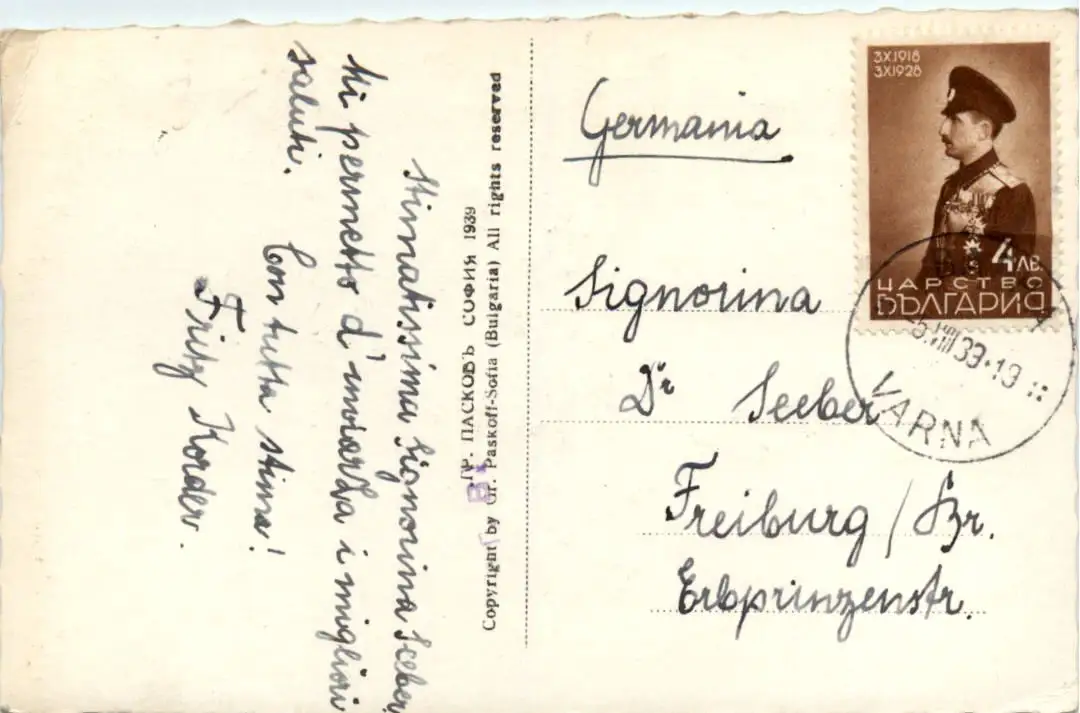 Stimatissima Signorina Seeber,
Mi permetto d'inviarLa i migliori
saluti. Con tutta stima!
Fritz Korder.
ГР. ПАСКОВЪ СОФИЯ 1939
Copyright by Gr. Paskoff-Sofia (Bulgaria) All rights reserved
Germania
Signorina
Dr Seeber
Freiburg / Br.
Erbprinzenstr.
3X1918
3X1928
4 ЛВ.
ЦАРСТВО
БЪЛГАРИЯ
VIII 39·19
VARNA